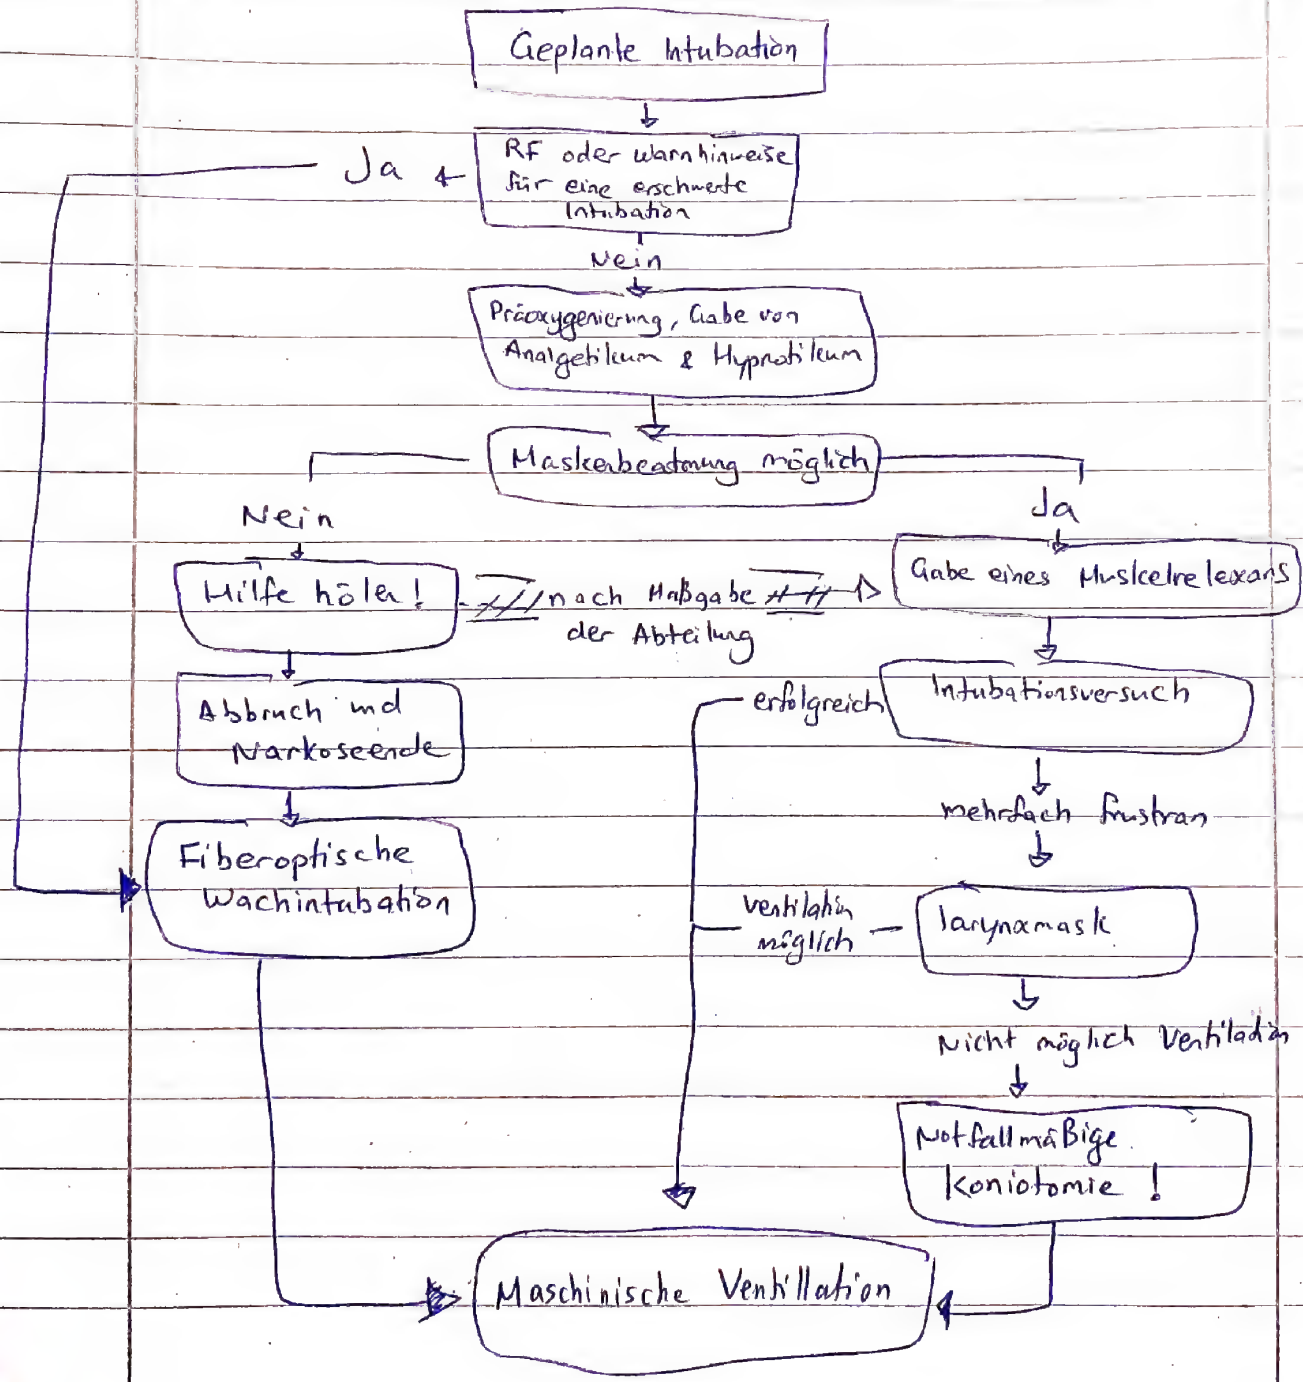 Geplante Intubation
RF oder Warnhinweise
für eine erschwerte
Intubation
Ja
Nein
Präoxygenierung, Gabe von
Analgetikum & Hypnotikum
Maskenbeatmung möglich
Nein
Ja
Hilfe hölen!
nach Maßgabe
der Abteilung
Gabe eines Muskelrelexans
Abbruch und
Narkoseende
erfolgreich
Intubationsversuch
mehrfach frustran
Fiberoptische
Wachintubation
Ventilation
möglich
larynxmask
Nicht möglich Ventilation
Notfallmäßige
Koniotomie !
Maschinische Ventillation